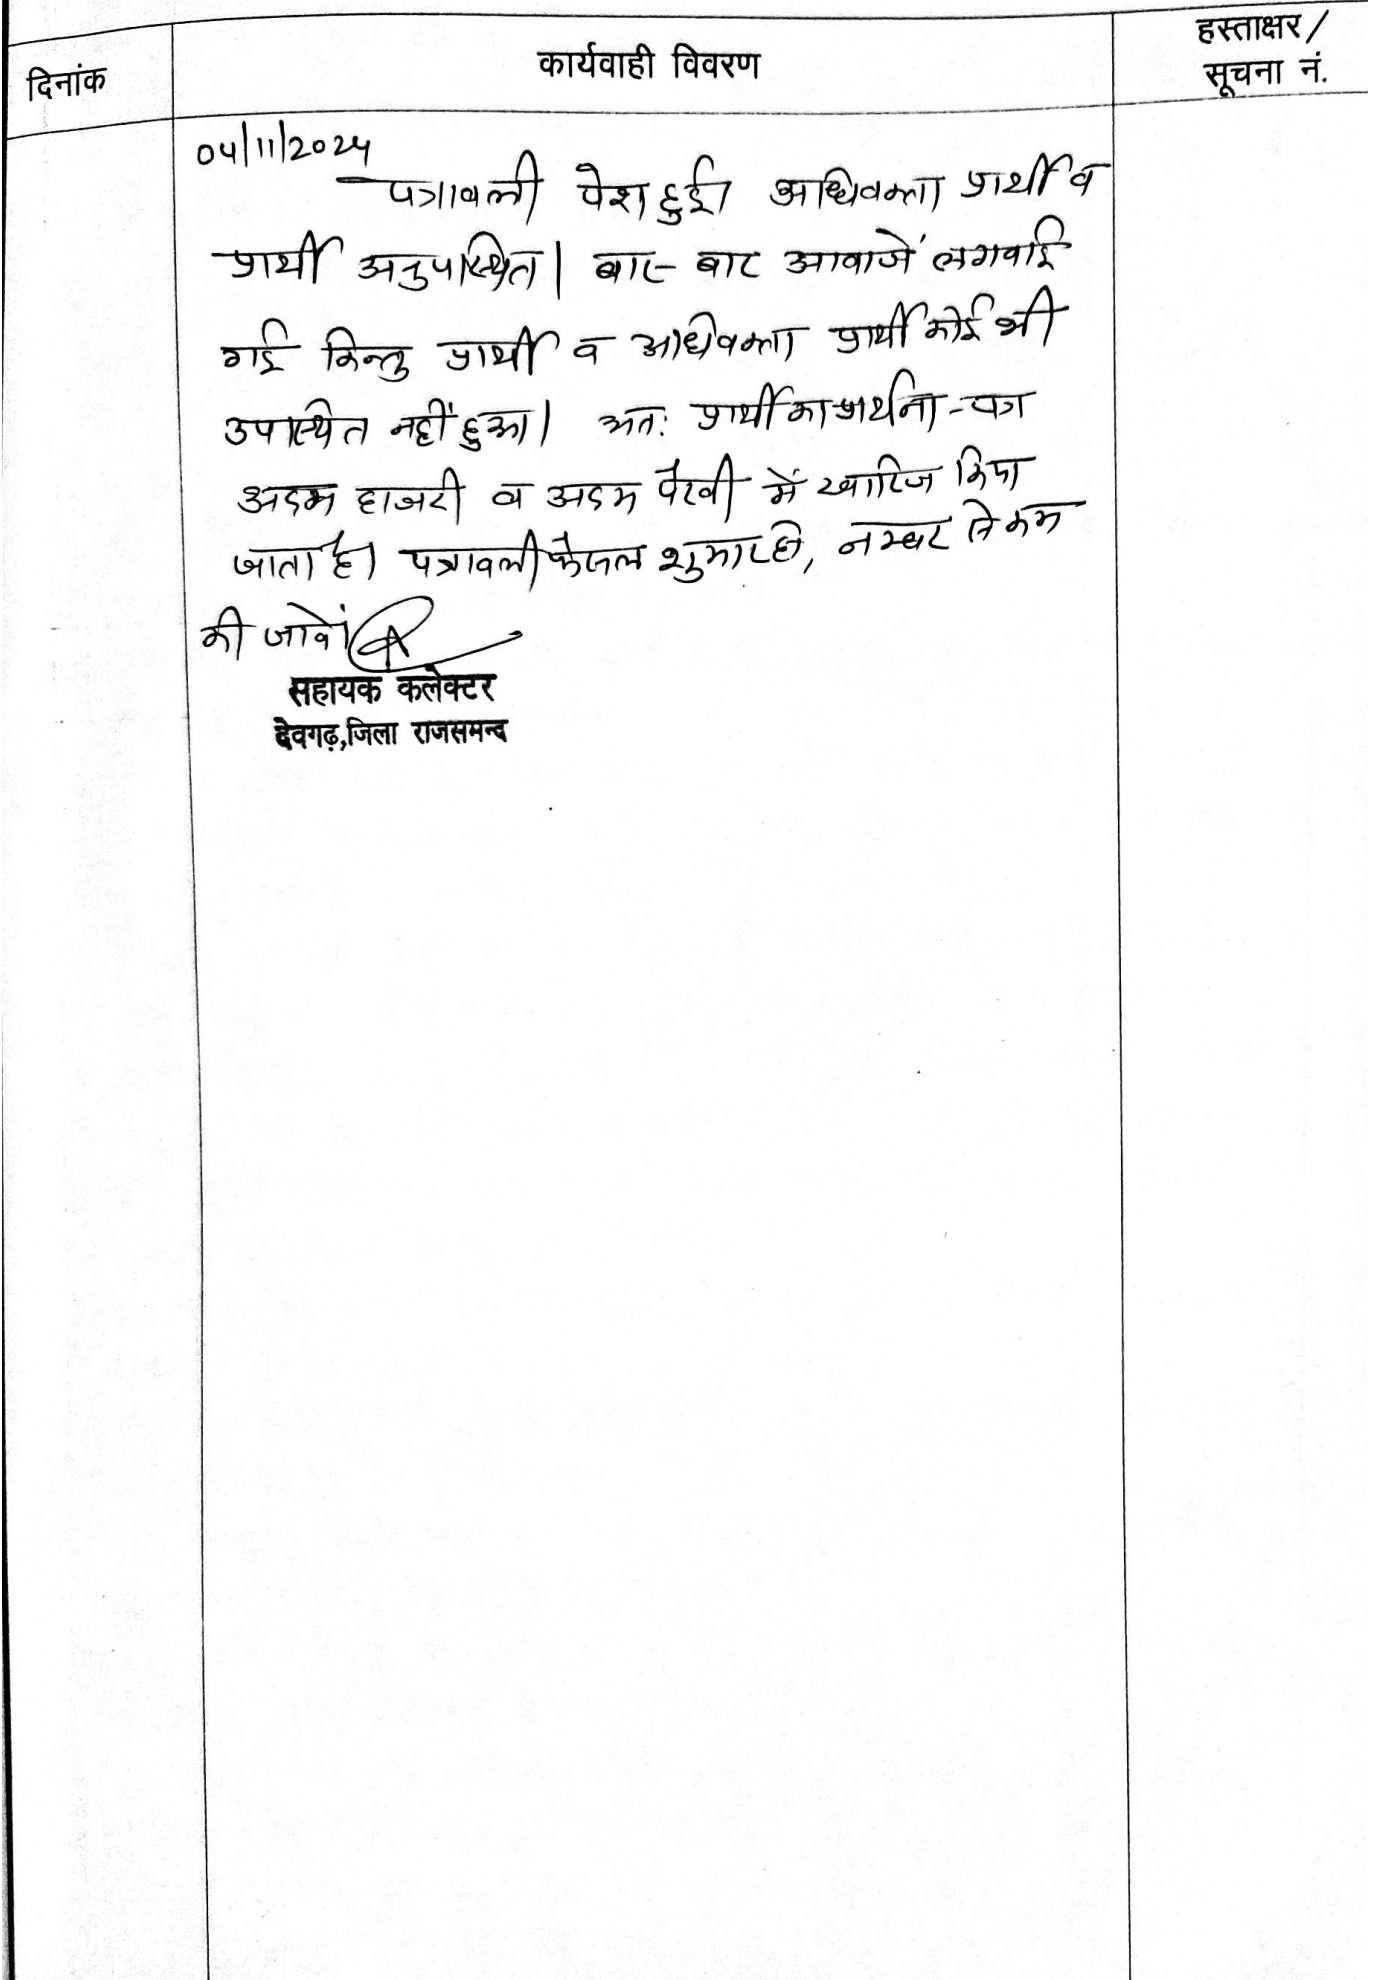 दिनांक
कार्यवाही विवरण
हस्ताक्षर/
सूचना नं.
04/11/2024
पत्रावली पेश हुई। अधिवक्ता प्रार्थी व
प्रार्थी अनुपस्थित। बार-बार आवाजें लगवाई
गई किन्तु प्रार्थी व अधिवक्ता प्रार्थी कोई भी
उपस्थित नहीं हुआ। अतः प्रार्थी का प्रार्थना-पत्र
अदम हाजरी व अदम पैरवी में खारिज किया
जाता है। पत्रावली फैसल शुमार हो, नम्बर से कम
की जावे।
सहायक कलेक्टर
देवगढ़,जिला राजसमन्द